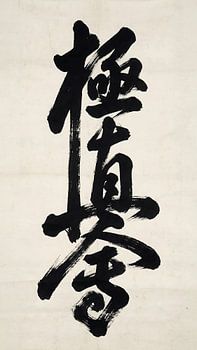 極真會